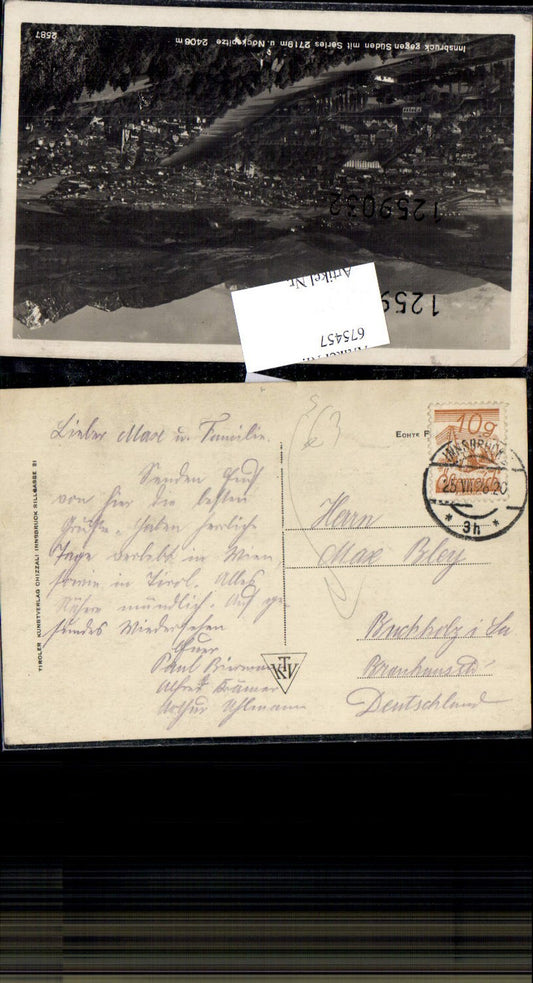 Innsbruck gegen Süden mit Serles 2719m u. Nockspitze 2406m
2587
1259032
1259
Artikel Nr
675457
Lieber Max u. Familie.
Senden Euch
von hier die besten
Grüße. Haben herrliche
Tage verlebt in Wien
sowie in Tirol. Alles
Nähere mündlich. Auf ge
sundes Wiedersehen
Euer
Paul
Alfred Krämer
Arthur Uhlmann
TIROLER KUNSTVERLAG CHIZZALI INNSBRUCK RILLGASSE 21
TKV
63
ECHTE
10g
INNSBRUCK
25.VII.26 20
* 3h *
Herrn
Max Bley
Buchholz i Sa
Brauhausstr
Deutschland